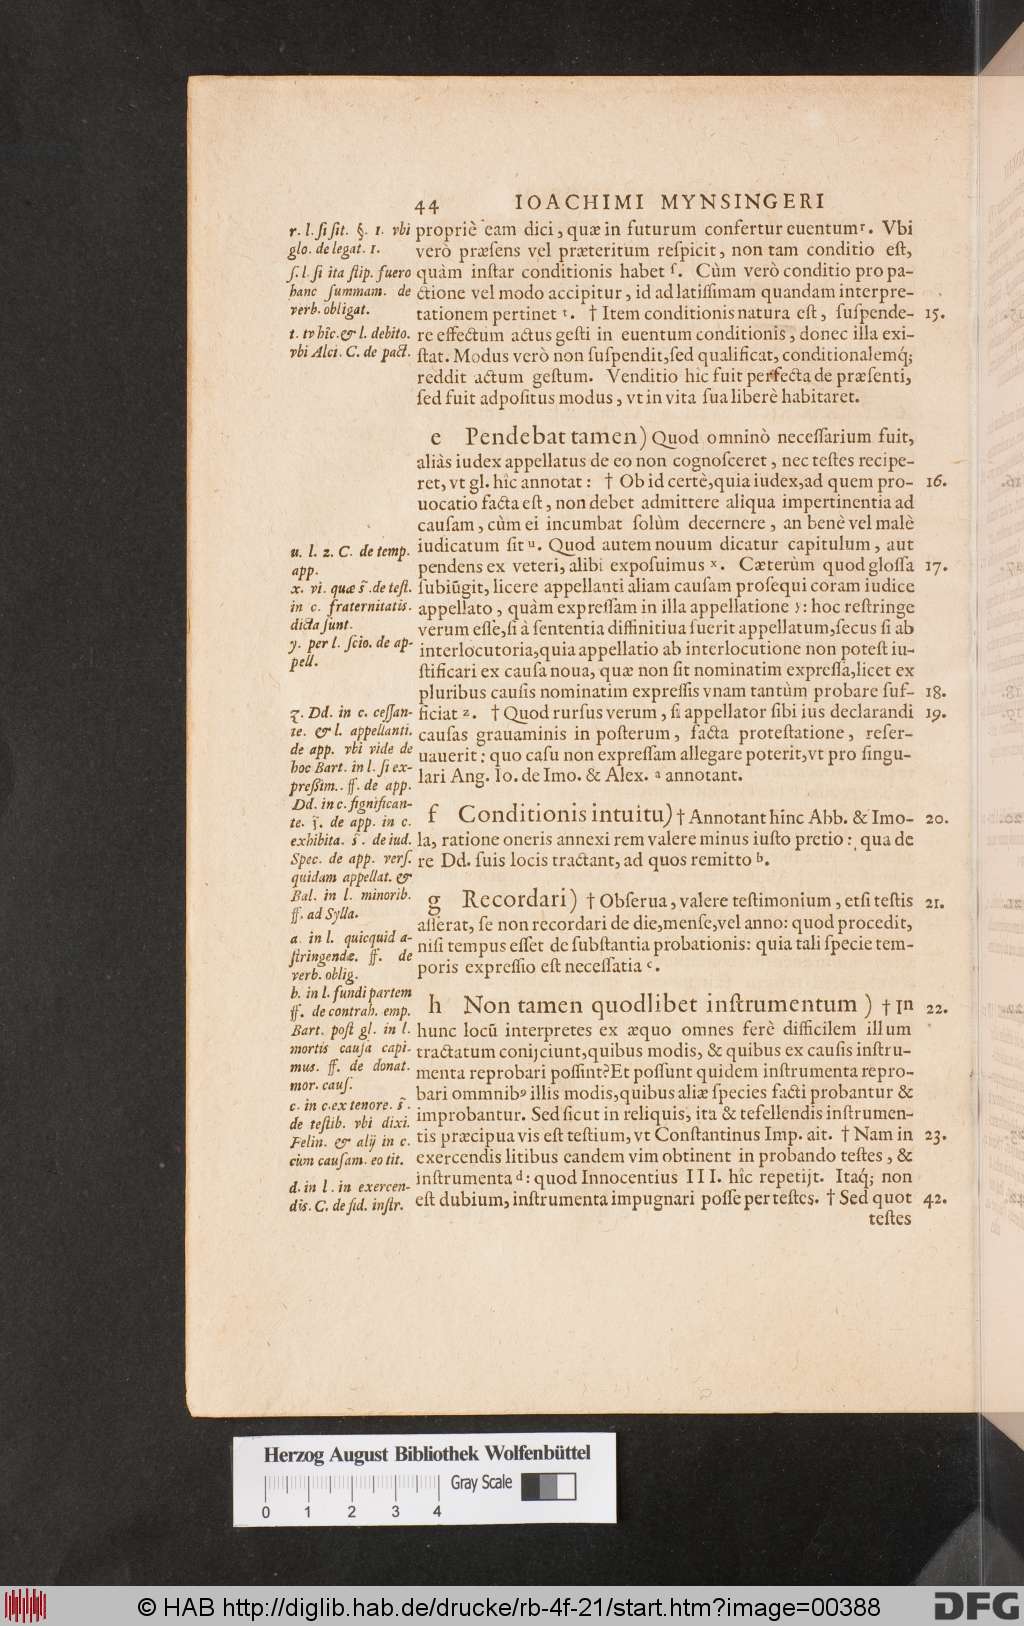 44 IOACHIMI MYNSINGERI
propriè eam dici, quæ in futurum confertur euentum r. Vbi
verò præſens vel præteritum reſpicit, non tam conditio eſt,
quàm inſtar conditionis habet ſ. Cùm verò conditio pro pa-
ctione vel modo accipitur, id ad latiſſimam quandam interpre-
tationem pertinet t. † Item conditionis natura eſt, ſuſpende- 15.
re effectum actus geſti in euentum conditionis, donec illa exi-
ſtat. Modus verò non ſuſpendit, ſed qualificat, conditionalemq́;
reddit actum geſtum. Venditio hic fuit perfecta de præſenti,
ſed fuit adpoſitus modus, vt in vita ſua liberè habitaret.
e Pendebat tamen) Quod omninò neceſſarium fuit,
aliàs iudex appellatus de eo non cognoſceret, nec teſtes recipe-
ret, vt gl. hîc annotat: † Ob id certè, quia iudex, ad quem pro- 16.
uocatio facta eſt, non debet admittere aliqua impertinentia ad
cauſam, cùm ei incumbat ſolùm decernere, an benè vel malè
iudicatum ſit u. Quod autem nouum dicatur capitulum, aut
pendens ex veteri, alibi expoſuimus x. Cæterùm quod gloſſa 17.
ſubiūgit, licere appellanti aliam cauſam proſequi coram iudice
appellato, quàm expreſſam in illa appellatione y: hoc reſtringe
verum eſſe, ſi à ſententia diffinitiua fuerit appellatum, ſecus ſi ab
interlocutoria, quia appellatio ab interlocutione non poteſt iu-
ſtificari ex cauſa noua, quæ non ſit nominatim expreſſa, licet ex
pluribus cauſis nominatim expreſſis vnam tantùm probare ſuf- 18.
ficiat z. † Quod rurſus verum, ſi appellator ſibi ius declarandi 19.
cauſas grauaminis in poſterum, facta proteſtatione, reſer-
uauerit: quo caſu non expreſſam allegare poterit, vt pro ſingu-
lari Ang. Io. de Imo. & Alex. a annotant.
f Conditionis intuitu) † Annotant hinc Abb. & Imo- 20.
la, ratione oneris annexi rem valere minus iuſto pretio: qua de
re Dd. ſuis locis tractant, ad quos remitto b.
g Recordari) † Obſerua, valere teſtimonium, etſi teſtis 21.
aſſerat, ſe non recordari de die, menſe, vel anno: quod procedit,
niſi tempus eſſet de ſubſtantia probationis: quia tali ſpecie tem-
poris expreſſio eſt neceſſatia c.
h Non tamen quodlibet inſtrumentum) † In 22.
hunc locū interpretes ex æquo omnes ferè difficilem illum
tractatum conijciunt, quibus modis, & quibus ex cauſis inſtru-
menta reprobari poſſint? Et poſſunt quidem inſtrumenta repro-
bari ommnibꝰ illis modis, quibus aliæ ſpecies facti probantur &
improbantur. Sed ſicut in reliquis, ita & tefellendis inſtrumen-
tis præcipua vis eſt teſtium, vt Conſtantinus Imp. ait. † Nam in 23.
exercendis litibus eandem vim obtinent in probando teſtes, &
inſtrumenta d: quod Innocentius III. hîc repetijt. Itaq́; non
eſt dubium, inſtrumenta impugnari poſſe per teſtes. † Sed quot 42.
teſtes
r. l. ſi ſit. §. 1. vbi
glo. de legat. 1.
ſ. l. ſi ita ſtip. fuero
hanc ſummam. de
verb. obligat.
t. tv hîc. & l. debito.
vbi Alci. C. de pact.
u. l. 2. C. de temp.
app.
x. vi. quæ s̃. de teſt.
in c. fraternitatis.
dicta ſunt.
y. per l. ſcio. de ap-
pell.
z. Dd. in c. ceſſan-
te. & l. appellanti.
de app. vbi vide de
hoc Bart. in l. ſi ex-
preßim.. ff. de app.
Dd. in c. ſignifican-
te. s̃. de app. in c.
exhibita. s̃. de iud.
Spec. de app. verſ.
quidam appellat. &
Bal. in l. minorib.
ff. ad Sylla.
a. in l. quicquid a-
ſtringendæ. ff. de
verb. oblig.
b. in l. fundi partem
ff. de contrah. emp.
Bart. poſt gl. in l.
mortis cauſa capi-
mus. ff. de donat.
mor. cauſ.
c. in c. ex tenore. s̃.
de teſtib. vbi dixi.
Felin. & alij in c.
cùm cauſam. eo tit.
d. in l. in exercen-
dis. C. de fid. inſtr.
Herzog August Bibliothek Wolfenbüttel
Gray Scale
0 1 2 3 4
© HAB http://diglib.hab.de/drucke/rb-4f-21/start.htm?image=00388
DFG